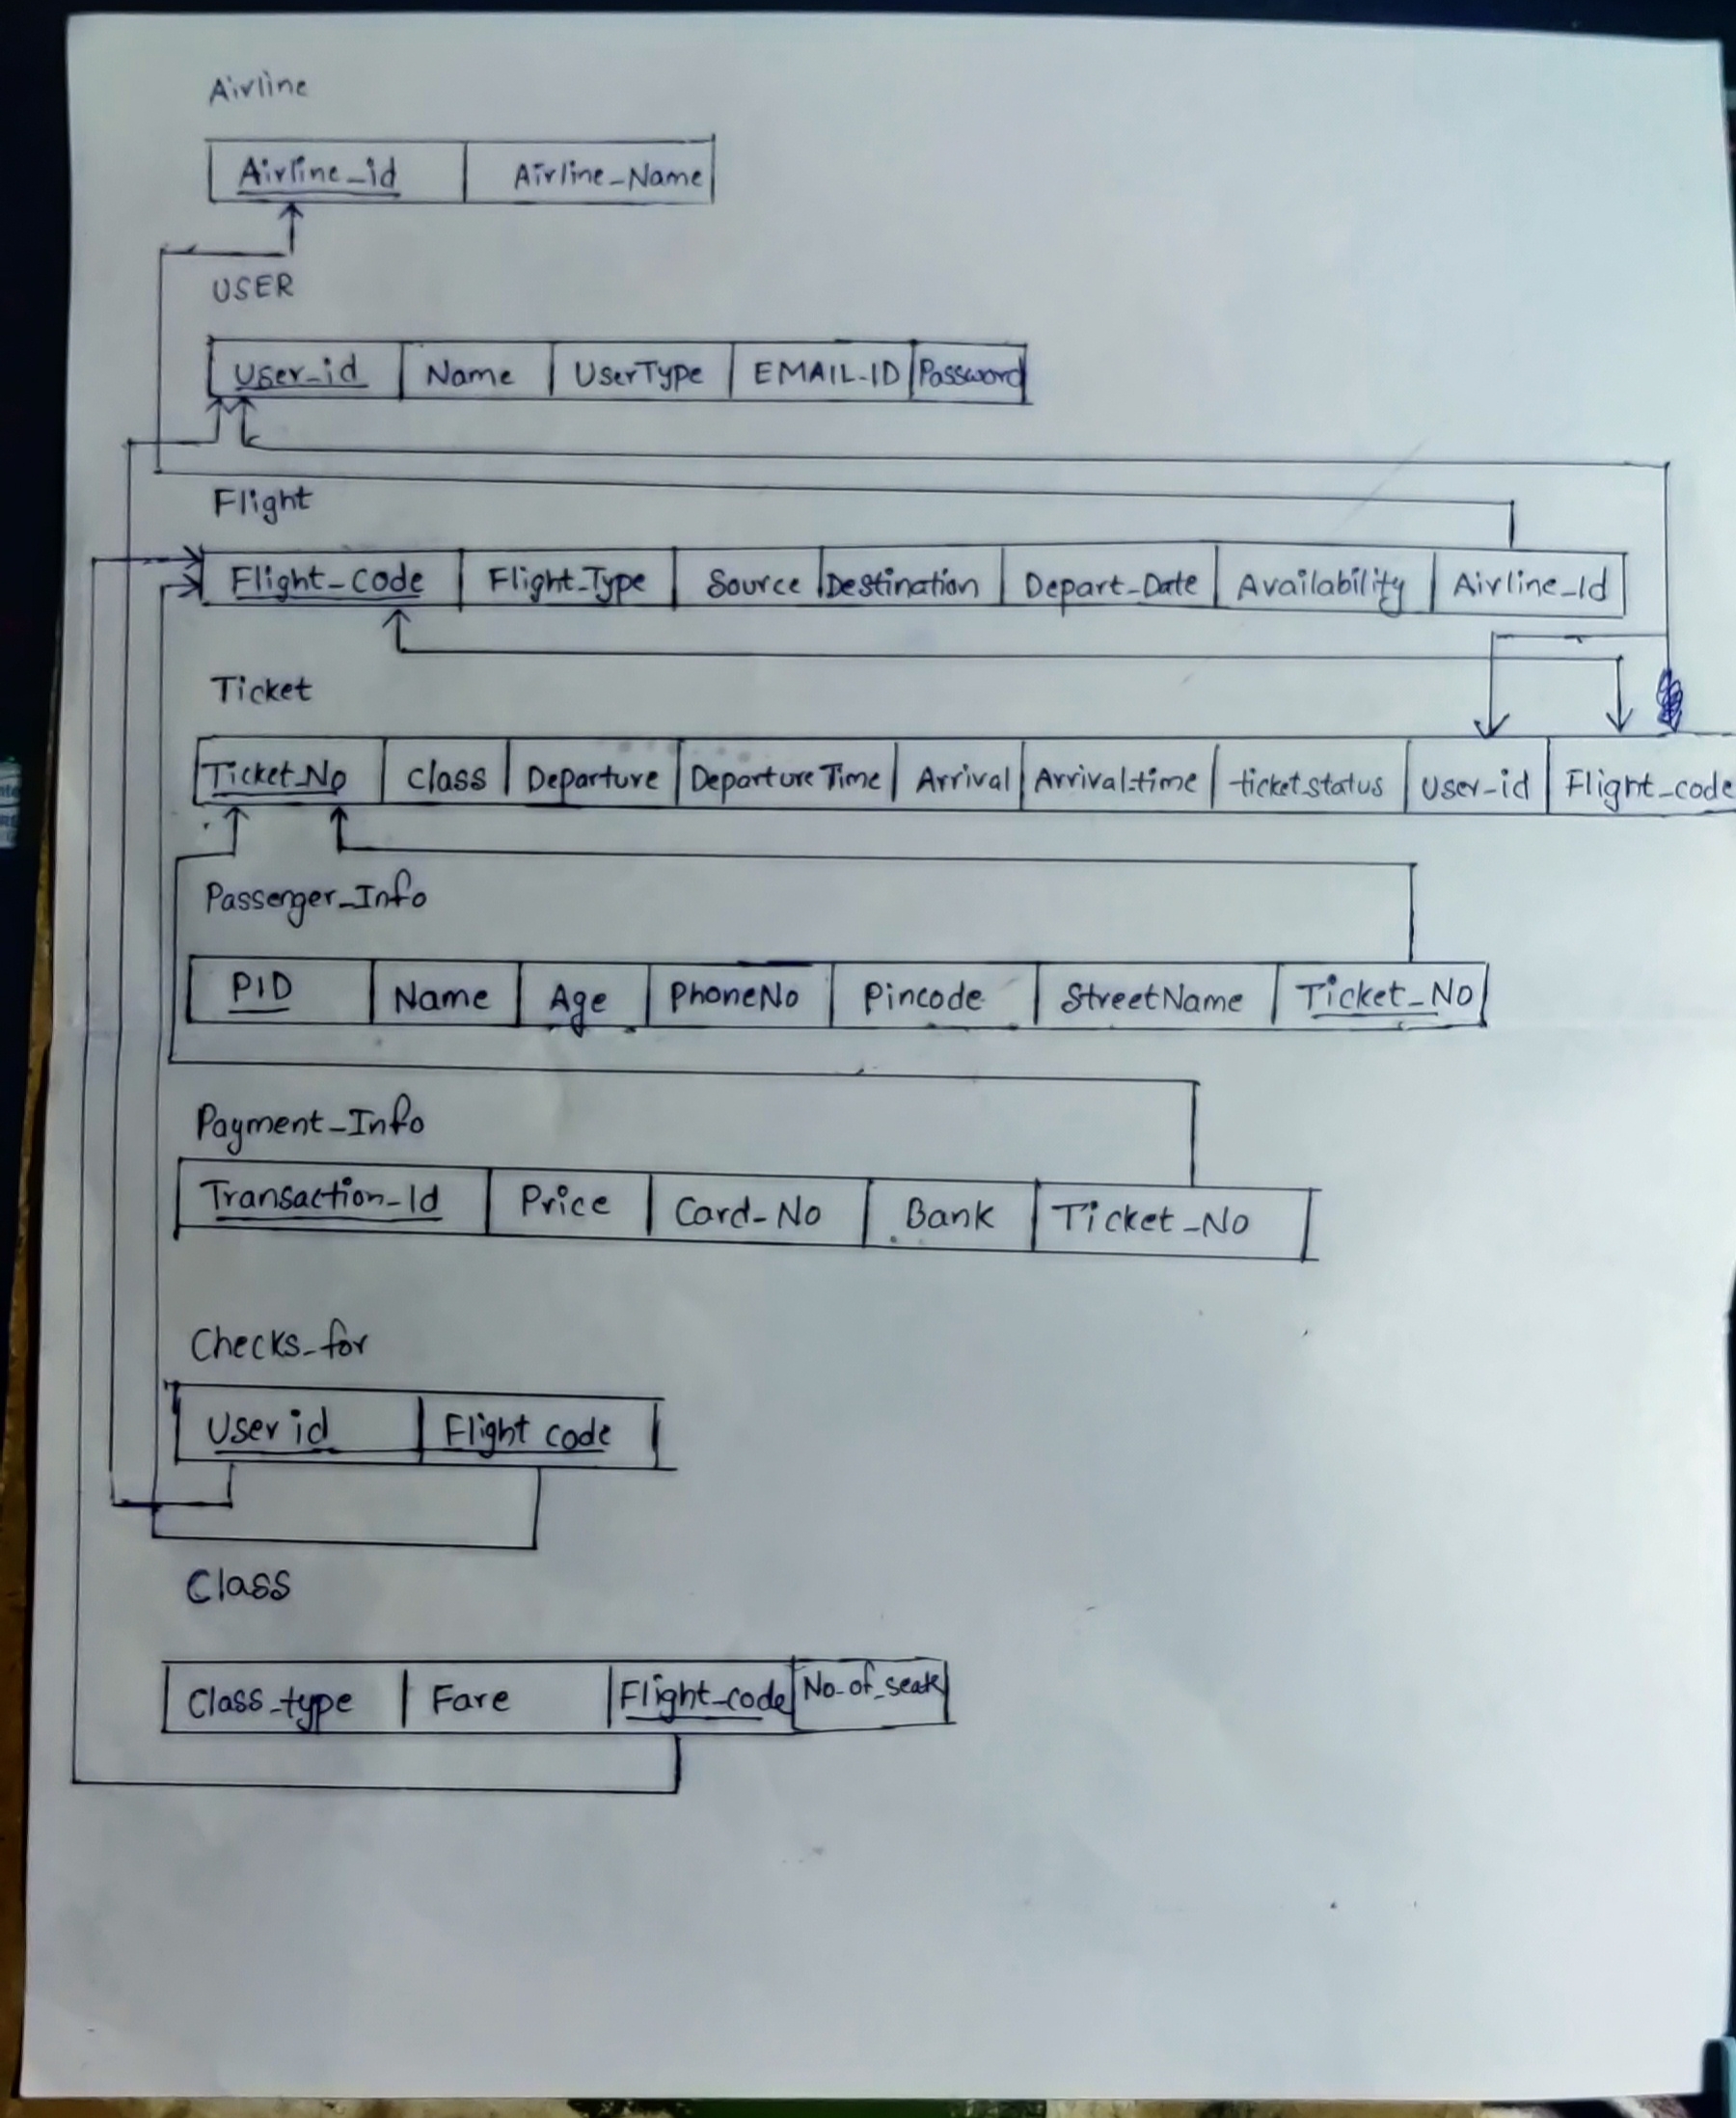 Airline
Airline_id Airline_Name
USER
User_id Name UserType EMAIL_ID Password
Flight
Flight_code Flight_Type Source Destination Depart_Date Availability Airline_Id
Ticket
Ticket_No Class Departure Departure Time Arrival Arrival_time ticket_status User_id Flight_code
Passenger_Info
PID Name Age PhoneNo Pincode StreetName Ticket_No
Payment_Info
Transaction_Id Price Card_No Bank Ticket_No
Checks_for
User id Flight code
Class
Class_type Fare Flight_code No_of_seats